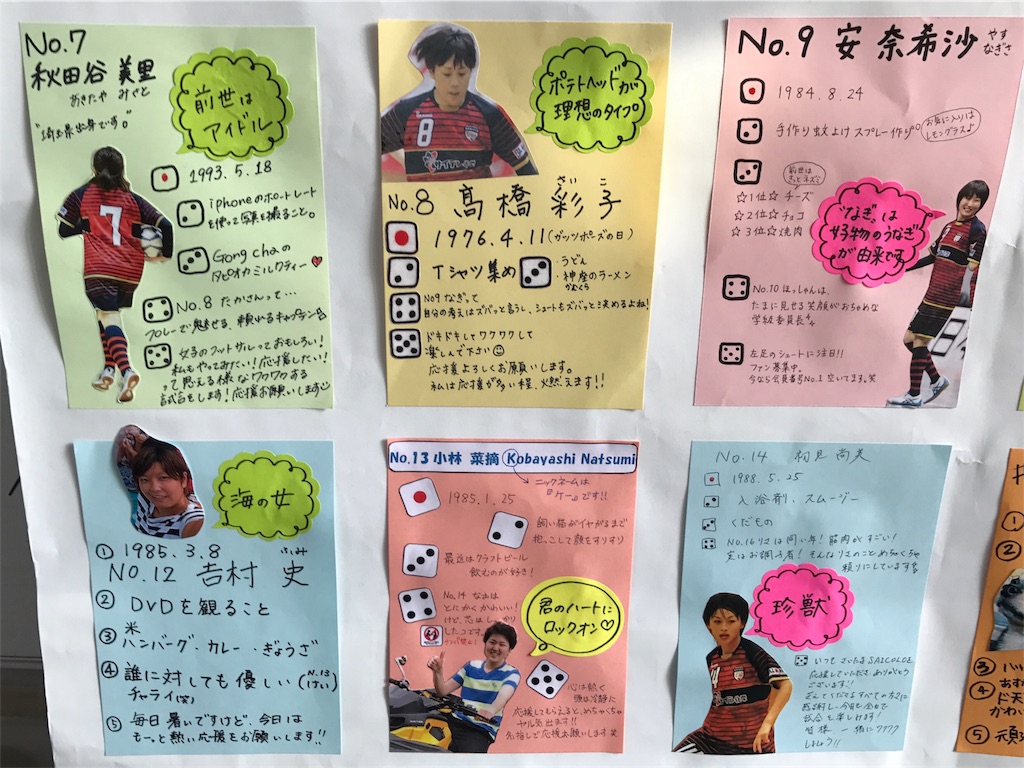 No.7
秋田谷 美里
あきたや みさと
"埼玉県出身です。"
前世は
アイドル
1993.5.18
iphoneのポートレート
を使って写真を撮ること。
Gong chaの
タピオカミルクティー♥
No.8 たかさんって…
プレーで魅せる、頼れるキャプテン
女子のフットサルっておもしろい!
私もやってみたい!応援したい!
って思える様なワクワクする
試合をします!応援お願いします
ポテトヘッドが
理想のタイプ
8
No.8 髙橋 彩子
さいこ
1976.4.11(ガッツポーズの日)
Tシャツ集め
・うどん
・神座のラーメン
かむくら
No9 なぎって
自分の考えはズバッと言うし、シュートもズバッと決めるよね!
ドキドキしてワクワクして
楽しんで下さい☺
応援よろしくお願いします。
私は応援が多い程、火燃えます!!
No.9 安 奈希沙
やす
なぎさ
1984.8.24
手作り蚊よけスプレー作り
お気に入りは
レモングラス♪
前世は
きっとネズミ
☆1位☆ チーズ
☆2位☆ チョコ
☆3位☆ 焼肉
"なぎ"は
好物のうなぎ
が由来です
No.10 はっしゃんは、
たまに見せる笑顔がおちゃめな
学級委員長
左足のシュートに注目!!
ファン募集中。
今なら会員番号No.1 空いてます。笑
7
海の女
① 1985.3.8
ふみ
No.12 吉村 史
② DVDを観ること
③ 米
ハンバーグ・カレー・ぎょうざ
④ 誰に対しても優しい (N.13 けい)
チャライ(笑)
⑤ 毎日暑いですけど、今日は
もーっと熱い応援をお願いします!!
No.13 小林 菜摘 Kobayashi Natsumi
ニックネームは
『ケー』です!!
1985.1.25
飼い猫がイヤがるまで
抱っこして顔をすりすり
最近はクラフトビール
飲むのが好き!
No.14 なおは
とにかくかわいい!
けど、芯はしっかり
したコです。
君のハートに
ロックオン♡
心は熱く
頭は冷静に
応援してもらえると、めちゃくちゃ
ヤル気出ます!!
名指しで応援お願いします 笑
No.14 初見 尚美
1988.5.25
入浴剤、スムージー
くだもの
No.16 りさは同い年!筋肉がすごい!
実はお調子者!そんなりさのことめちゃくちゃ
頼りにしています
珍獣
いつもさいたまSAICOLOを
応援していただき、ありがとう
ございます!!
支えてくださるすべての方に
感謝し、今日も全力で
試合を楽しみます!
皆様 一緒にワクワク
しましょう!!
①
②
③
④
ド天
かわい
⑤